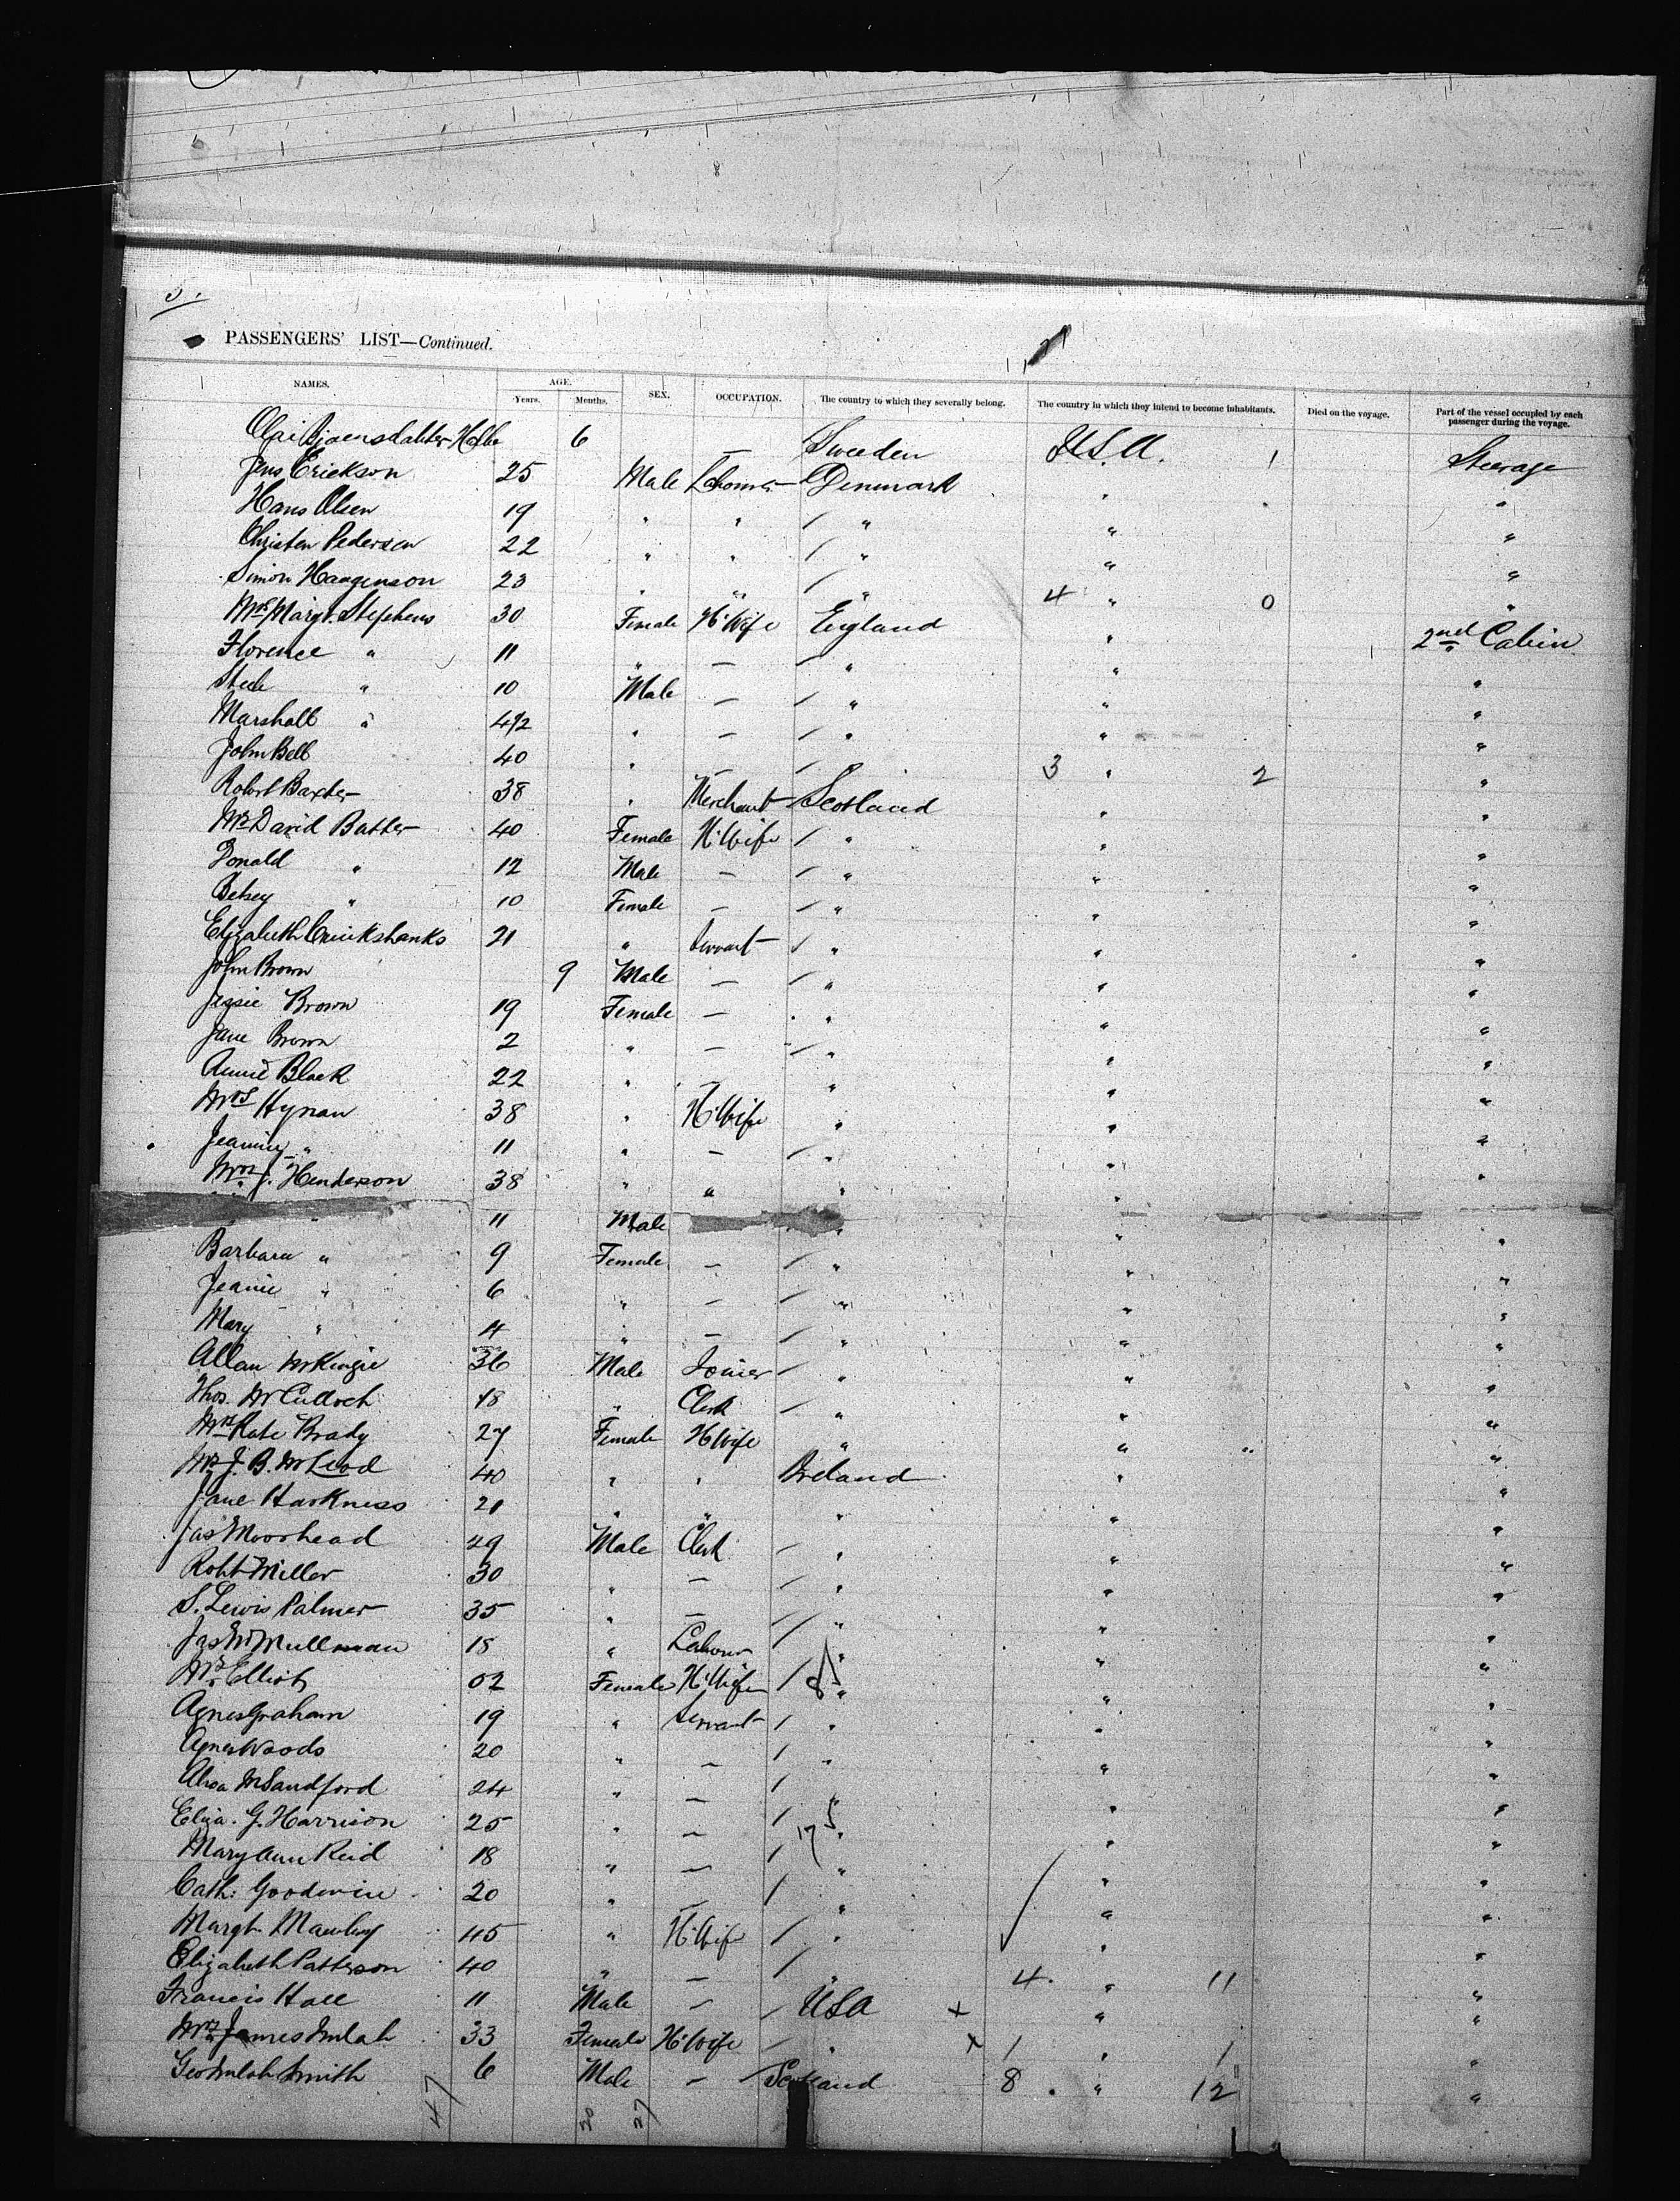 5.
PASSENGERS' LIST—Continued.
NAMES. AGE. SEX. OCCUPATION. The country to which they severally belong. The country in which they intend to become inhabitants. Died on the voyage. Part of the vessel occupied by each passenger during the voyage.
Years. Months.
6 — Sweden U.S.A. 1 Steerage
Jens Erickson 25 Male Labourer Denmark " "
Hans Olsen 19 " " / " " "
Christen Pedersen 22 " " / " " "
Simon Haagenson 23 " " / " 4 " 0 "
Mrs Margt. Stephens 30 Female H.Wife England " 2nd Cabin
Florence " 11 " — / " " "
" 10 Male — / " " "
Marshall " 4 1/2 " — / " " "
John Bell 40 " — / 3 " 2 "
Robert Baxter 38 " Merchant Scotland " "
Mrs David 40 Female H.Wife / " " "
Donald " 12 Male — / " " "
Betsey " 10 Female — / " " "
Elizabeth Cruickshanks 21 " Servant / " " "
John Brown 9 Male — / " " "
Jessie Brown 19 Female — " " "
Jane Brown 2 " — / " " "
Annie Black 22 " — " " "
Mrs Hynan 38 " H.Wife " " "
" 11 " — / " " "
Mrs J. Henderson 38 " " " " "
" 11 Male " "
Barbara " 9 Female — / " " "
Jeanie " 6 " — / " " "
Mary " 4 " — / " " "
Allan McKinzie 36 Male Joiner / " " "
Thos. McCulloch 18 " Clerk / " " "
Mrs Kate Brady 27 Female H.Wife " " "
Mrs J. B. McLeod 40 " " Ireland " "
Jane Harkness 21 " " " " "
Jas Moorhead 29 Male Clerk — " " "
Robt Miller 30 " — / " " "
S. Lewis Palmer 35 " — / " " "
Jas 18 " Labour / " " "
Mrs Elliot Female H.Wife / " " "
Agnes Graham 19 " Servant / " " "
Agnes Woods 20 " — / " " "
Sandford 24 " — / " "
Eliza. G. Harrison 25 " — / 17 " " "
Mary Ann Reid 18 " — / " " "
Cath: Goodwin 20 " — / " " "
Margt. 45 " H.Wife / " " "
Elizabeth Patterson 40 " — / " 4 " 11 "
Francis Hall 11 Male — / USA x " "
Mrs James Imlah 33 Female H.Wife / " x 1 " 1 "
Geo Imlah Smith 6 Male — / Scotland 8 " 12 "
47 20 27